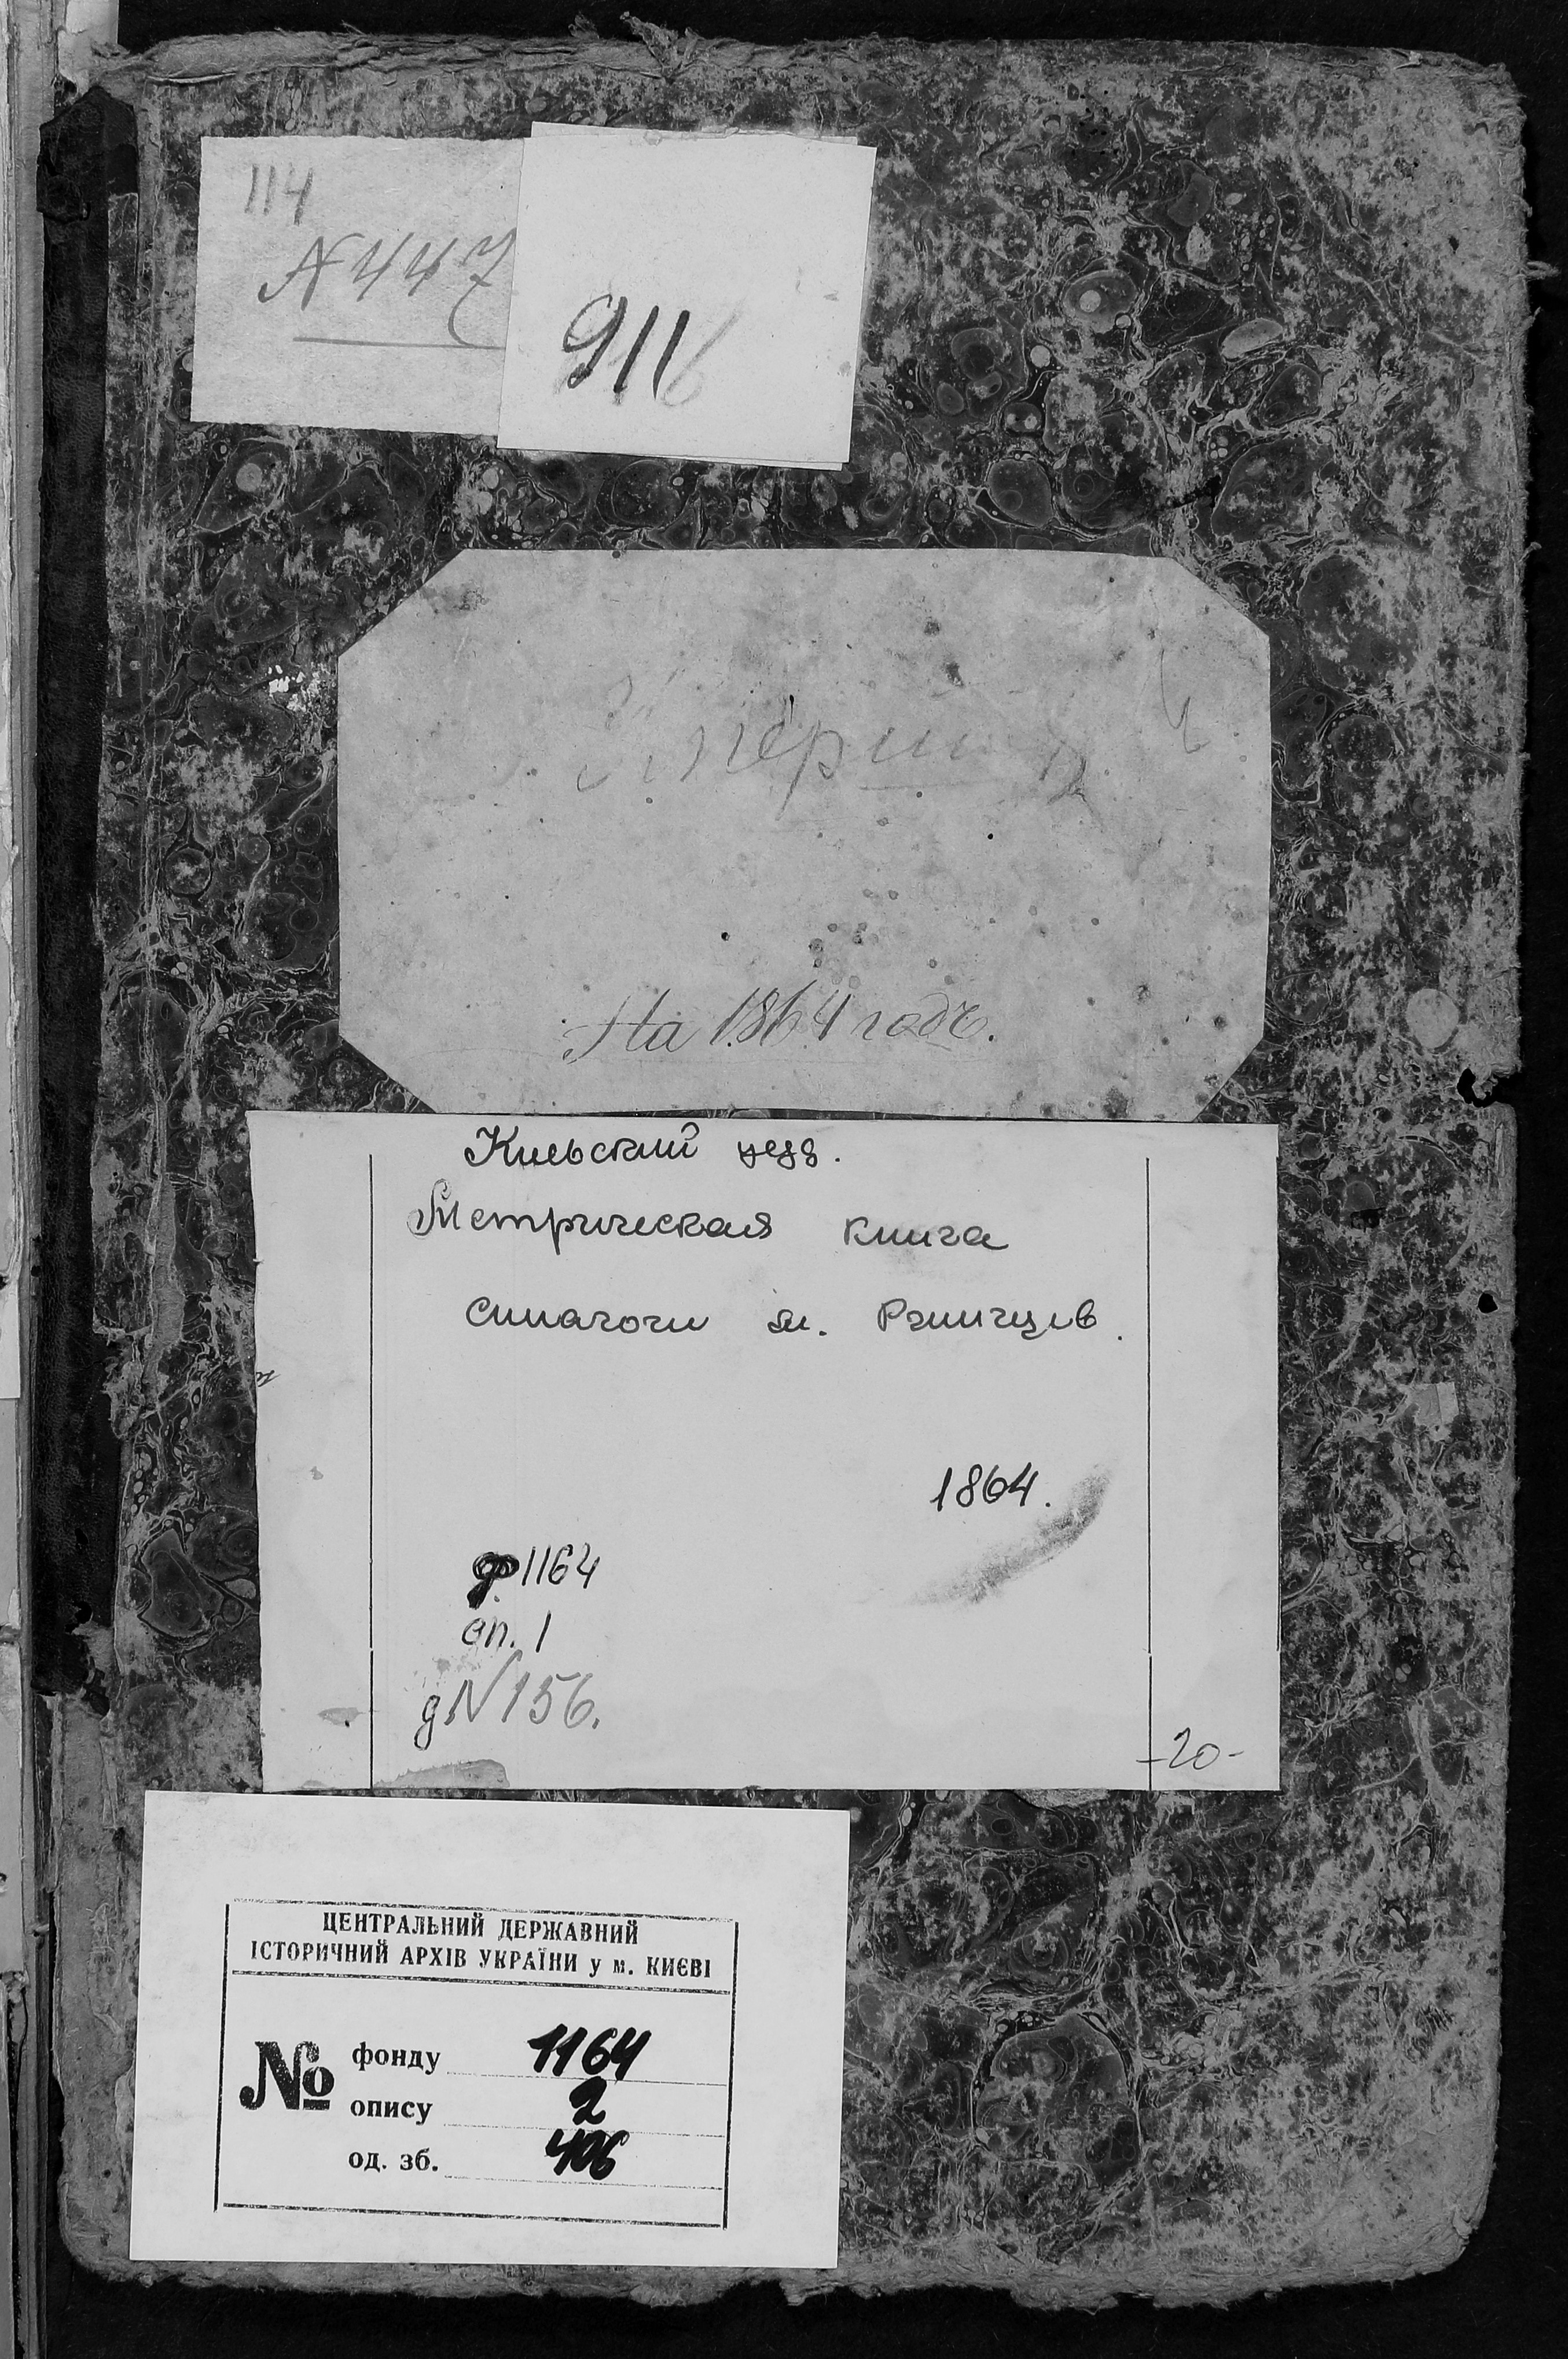 114
N 447
911
На 1864 годъ.
Киевский уезд.
Метрическая книга
синагоги м. Ржищев.
1864.
ф 1164
оп. 1
д N 156.
-20-
ЦЕНТРАЛЬНИЙ ДЕРЖАВНИЙ
ІСТОРИЧНИЙ АРХІВ УКРАЇНИ у м. КИЄВІ
№ фонду 1164
опису 2
од. зб. 406